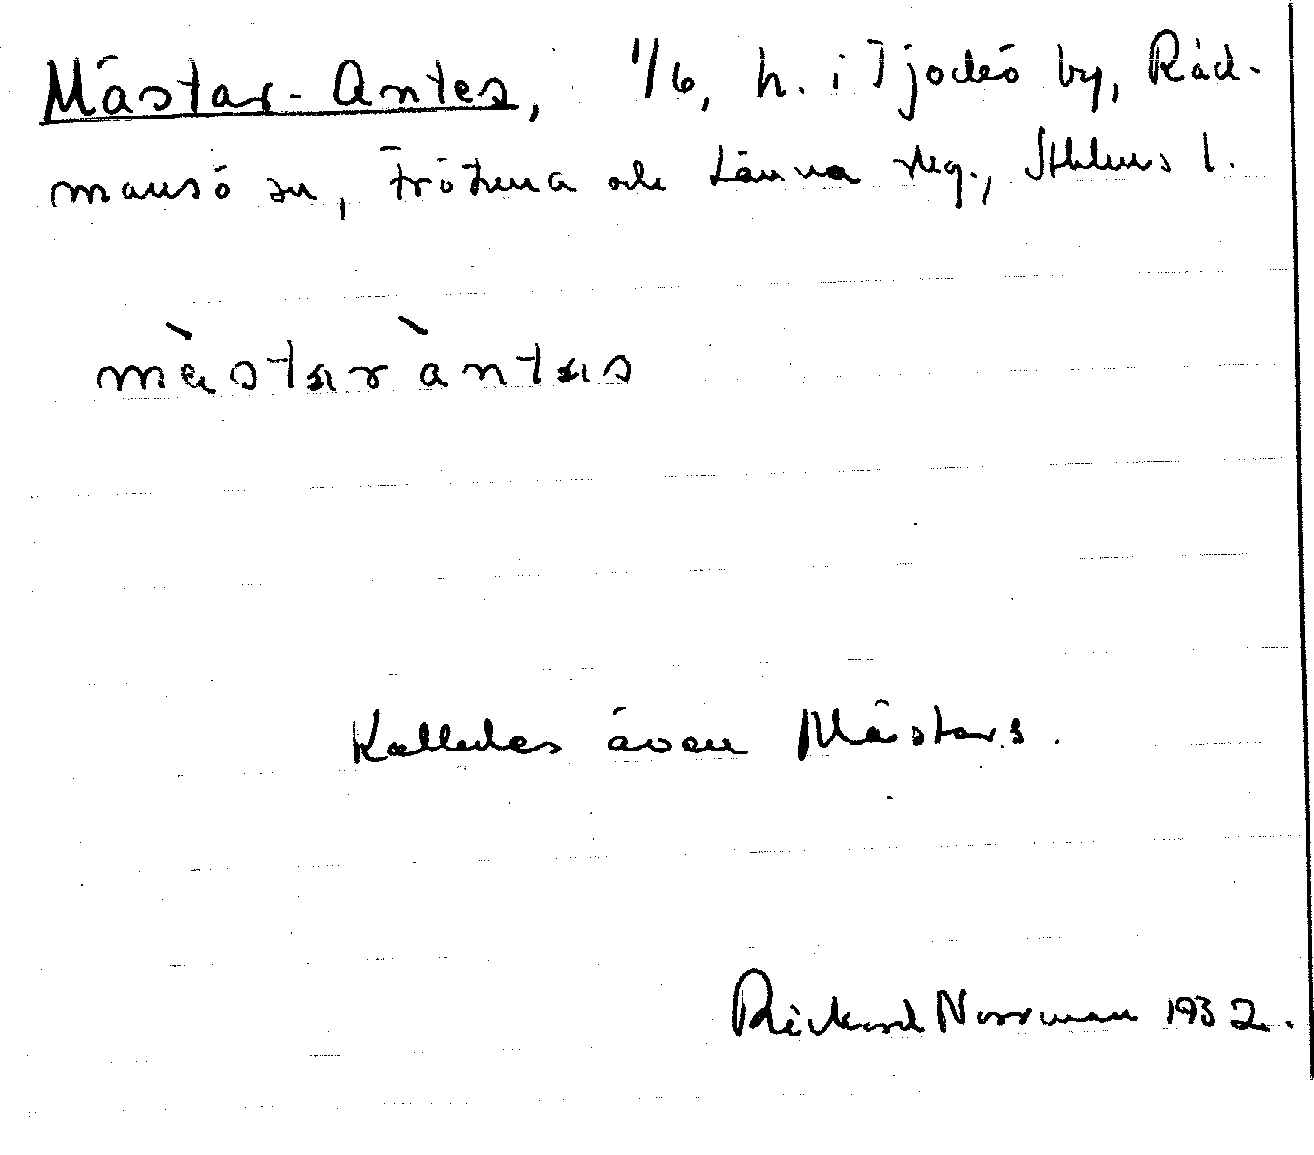 Mästar-Antes, 1/6, h. i Tjockö by, Råd-
mansö sn, Frötuna och Länna skg., Sthlms l.
mèstaràntas
Kallades även Mästars.
Rickard Norrman 1932.